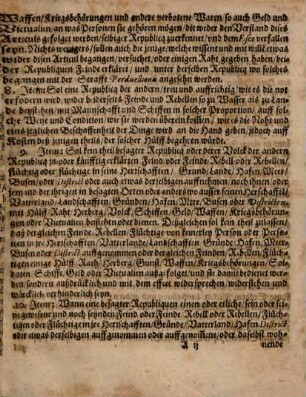 Waffen/Kriegsbehörungen und andere verbotene Waren/so auch Geld und
Victualien/an was Personen sie gehören mögen/die wider den Verstand dises
Articuls gefolget werden/selbiger Republiq zuerkennet/und dem Fisco verfallen
seyn. Nichts weniger/sollen auch die jenige/welche wissent und mit will etwas
wider disen Articul begangen/versuchet/oder einigen Raht gegeben haben/bey
der Republiquen Feinde erkläret/und unter derselben Republiq wo solches
begangen mit der Straffe Perduellionis angesehen werden.
8. Item: Sol eine Republiq der andern/treu und auffrichtig/wie es die not
erfodern wird/wider dieserseits Feinde und Rebellen so zu Wasser als zu Lande
beystehen/mit Mannschafft und Schiffen in solcher Proportion/auff solche
Weise und Condition/wie sie werden übereinkoffen/wie es die Noht und
jegliche Beschaffenheit der Dinge wird an die Hand geben/jedoch auff
Kosten des jenigen theils/der solcher Hülff begehren würde.
9. Item: Sol kein theil besagter Republiq oder dero Volck der andern
Republiq jtzo oder künfftig erklärten Feind oder Feinde/Rebell oder Rebellen/
flüchtig oder flüchtige in seine Herrschafften/Grund/Lande/Hafen/Meer/
Busen/oder District oder auch etwas derselbigen auffnehmen/noch
Vatterland/Landschafften/Gründen/Hafen/Meer/Busen oder Districten
mit Hülff/Raht/Herberg/Volck/Schiffen/Geld/Waffen/Kriegsbehörun-
gen oder Victualien beystehen oder dienen. Deßgleichen sol kein theil zulassen/
das dergleichen Feinde/Rebellen/Flüchtige von keinerley Person oder Perso-
nen in jre Herrschafften/Vatterlande/Landschafften/Gründe/Hafen/Meer/
Busen oder District auffgenommen oder dergleichen Feinden/Rebellen/Flüch-
tigen einige Hülff/Raht/Herberg/Gunst/Waffen/Kriegsbehörungen/Sol-
daten/Schiffe/Geld oder Victualien
sondern
würcklich verhinderlich seyn.
10. Item: Wann eine besagter Republiquen einen oder etliche/sein oder sei-
nige gewesene und noch seynden Feind oder Feinde/Rebell oder Rebellen/Flüch-
tigen oder Flüchtige in jre Herrschafften/Gründe/Vatterland/Hafen/District
oder etwas derselbigen auffgenommen oder auffgenommene/oder daselbst woh-
A ij nende